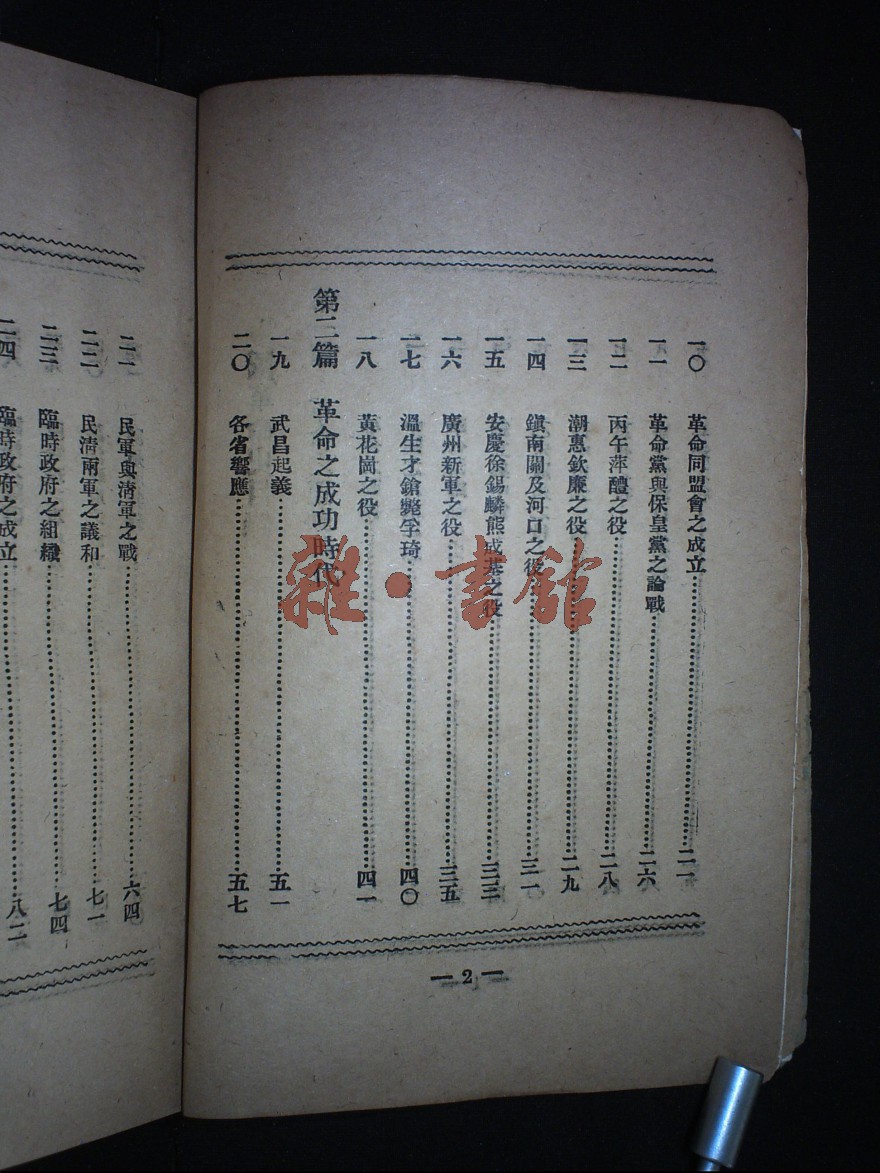 一〇 革命同盟會之成立……二一
一一 革命黨與保皇黨之論戰……二六
一二 丙午萍醴之役……二八
一三 潮惠欽廉之役……二九
一四 鎭南關及河口之役……三一
一五 安慶徐錫麟熊成基之役……三三
一六 廣州新軍之役……三五
一七 溫生才鎗斃孚琦……四〇
一八 黃花崗之役……四一
第二篇 革命之成功時代
一九 武昌起義……五一
二〇 各省響應……五七
— 2 —
二一 民軍與淸軍之戰……六四
二二 民淸兩軍之議和……七一
二三 臨時政府之組織……七四
二四 臨時政府之成立……八二
雜·書舘